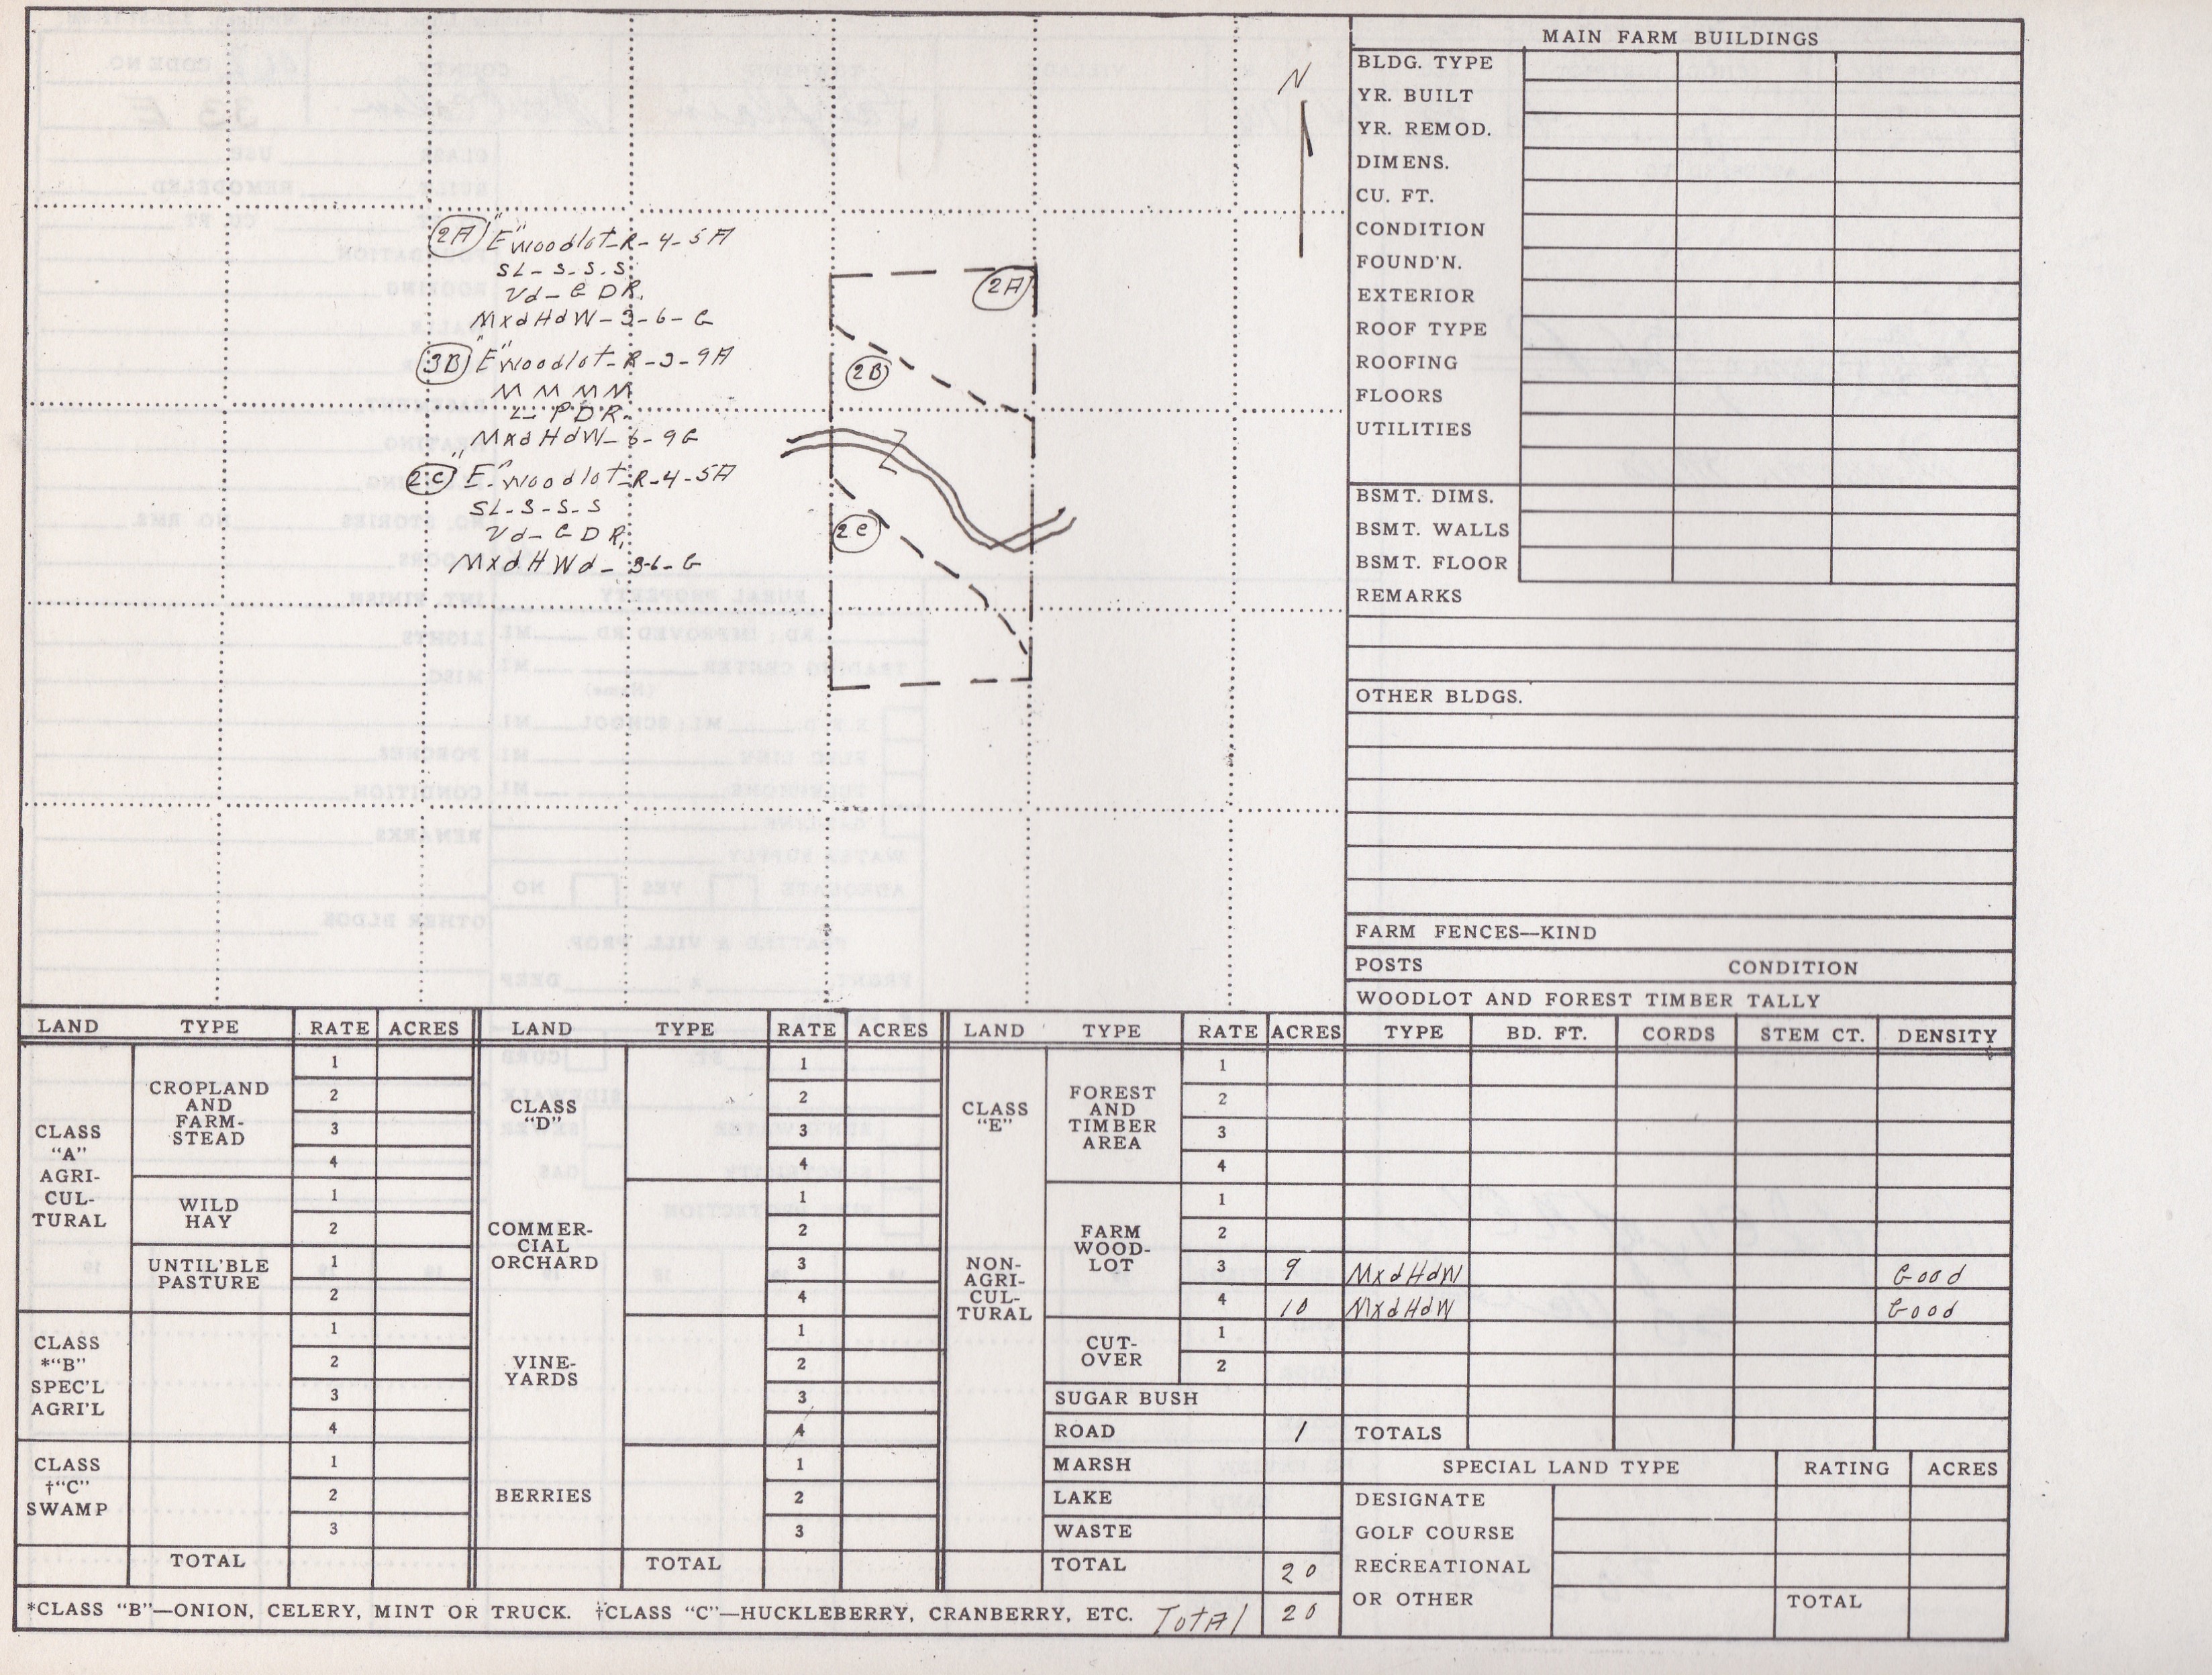 N
2A "E" Woodlot-R-4-5A
SL-S-S-S
Vd-G DR.
MxdHdW-3-6-G
3B "E" Woodlot-R-3-9A
M M M M
L-PDR-
MxdHdW-6-9G
2C "E" Woodlot-R-4-5A
SL-S-S-S
Vd-G DR.
MxdHWd-3-6-G
2A
2B
2C
MAIN FARM BUILDINGS
BLDG. TYPE
YR. BUILT
YR. REMOD.
DIMENS.
CU. FT.
CONDITION
FOUND'N.
EXTERIOR
ROOF TYPE
ROOFING
FLOORS
UTILITIES
BSMT. DIMS.
BSMT. WALLS
BSMT. FLOOR
REMARKS
OTHER BLDGS.
FARM FENCES—KIND
POSTS CONDITION
WOODLOT AND FOREST TIMBER TALLY
TYPE BD. FT. CORDS STEM CT. DENSITY
LAND TYPE RATE ACRES
CLASS
"A"
AGRI-
CUL-
TURAL
CROPLAND
AND
FARM-
STEAD
1
2
3
4
WILD
HAY
1
2
UNTIL'BLE
PASTURE
1
2
CLASS
*"B"
SPEC'L
AGRI'L
1
2
3
4
CLASS
†"C"
SWAMP
1
2
3
TOTAL
LAND TYPE RATE ACRES
CLASS
"D"
1
2
3
4
COMMER-
CIAL
ORCHARD
1
2
3
4
VINE-
YARDS
1
2
3
4
BERRIES
1
2
3
TOTAL
LAND TYPE RATE ACRES
CLASS
"E"
NON-
AGRI-
CUL-
TURAL
FOREST
AND
TIMBER
AREA
1
2
3
4
FARM
WOOD-
LOT
1
2
3 9 MxdHdW Good
4 10 MxdHdW Good
CUT-
OVER
1
2
SUGAR BUSH
ROAD 1 TOTALS
MARSH
LAKE
WASTE
TOTAL 20
SPECIAL LAND TYPE RATING ACRES
DESIGNATE
GOLF COURSE
RECREATIONAL
OR OTHER TOTAL
*CLASS "B"—ONION, CELERY, MINT OR TRUCK. †CLASS "C"—HUCKLEBERRY, CRANBERRY, ETC. Total 20